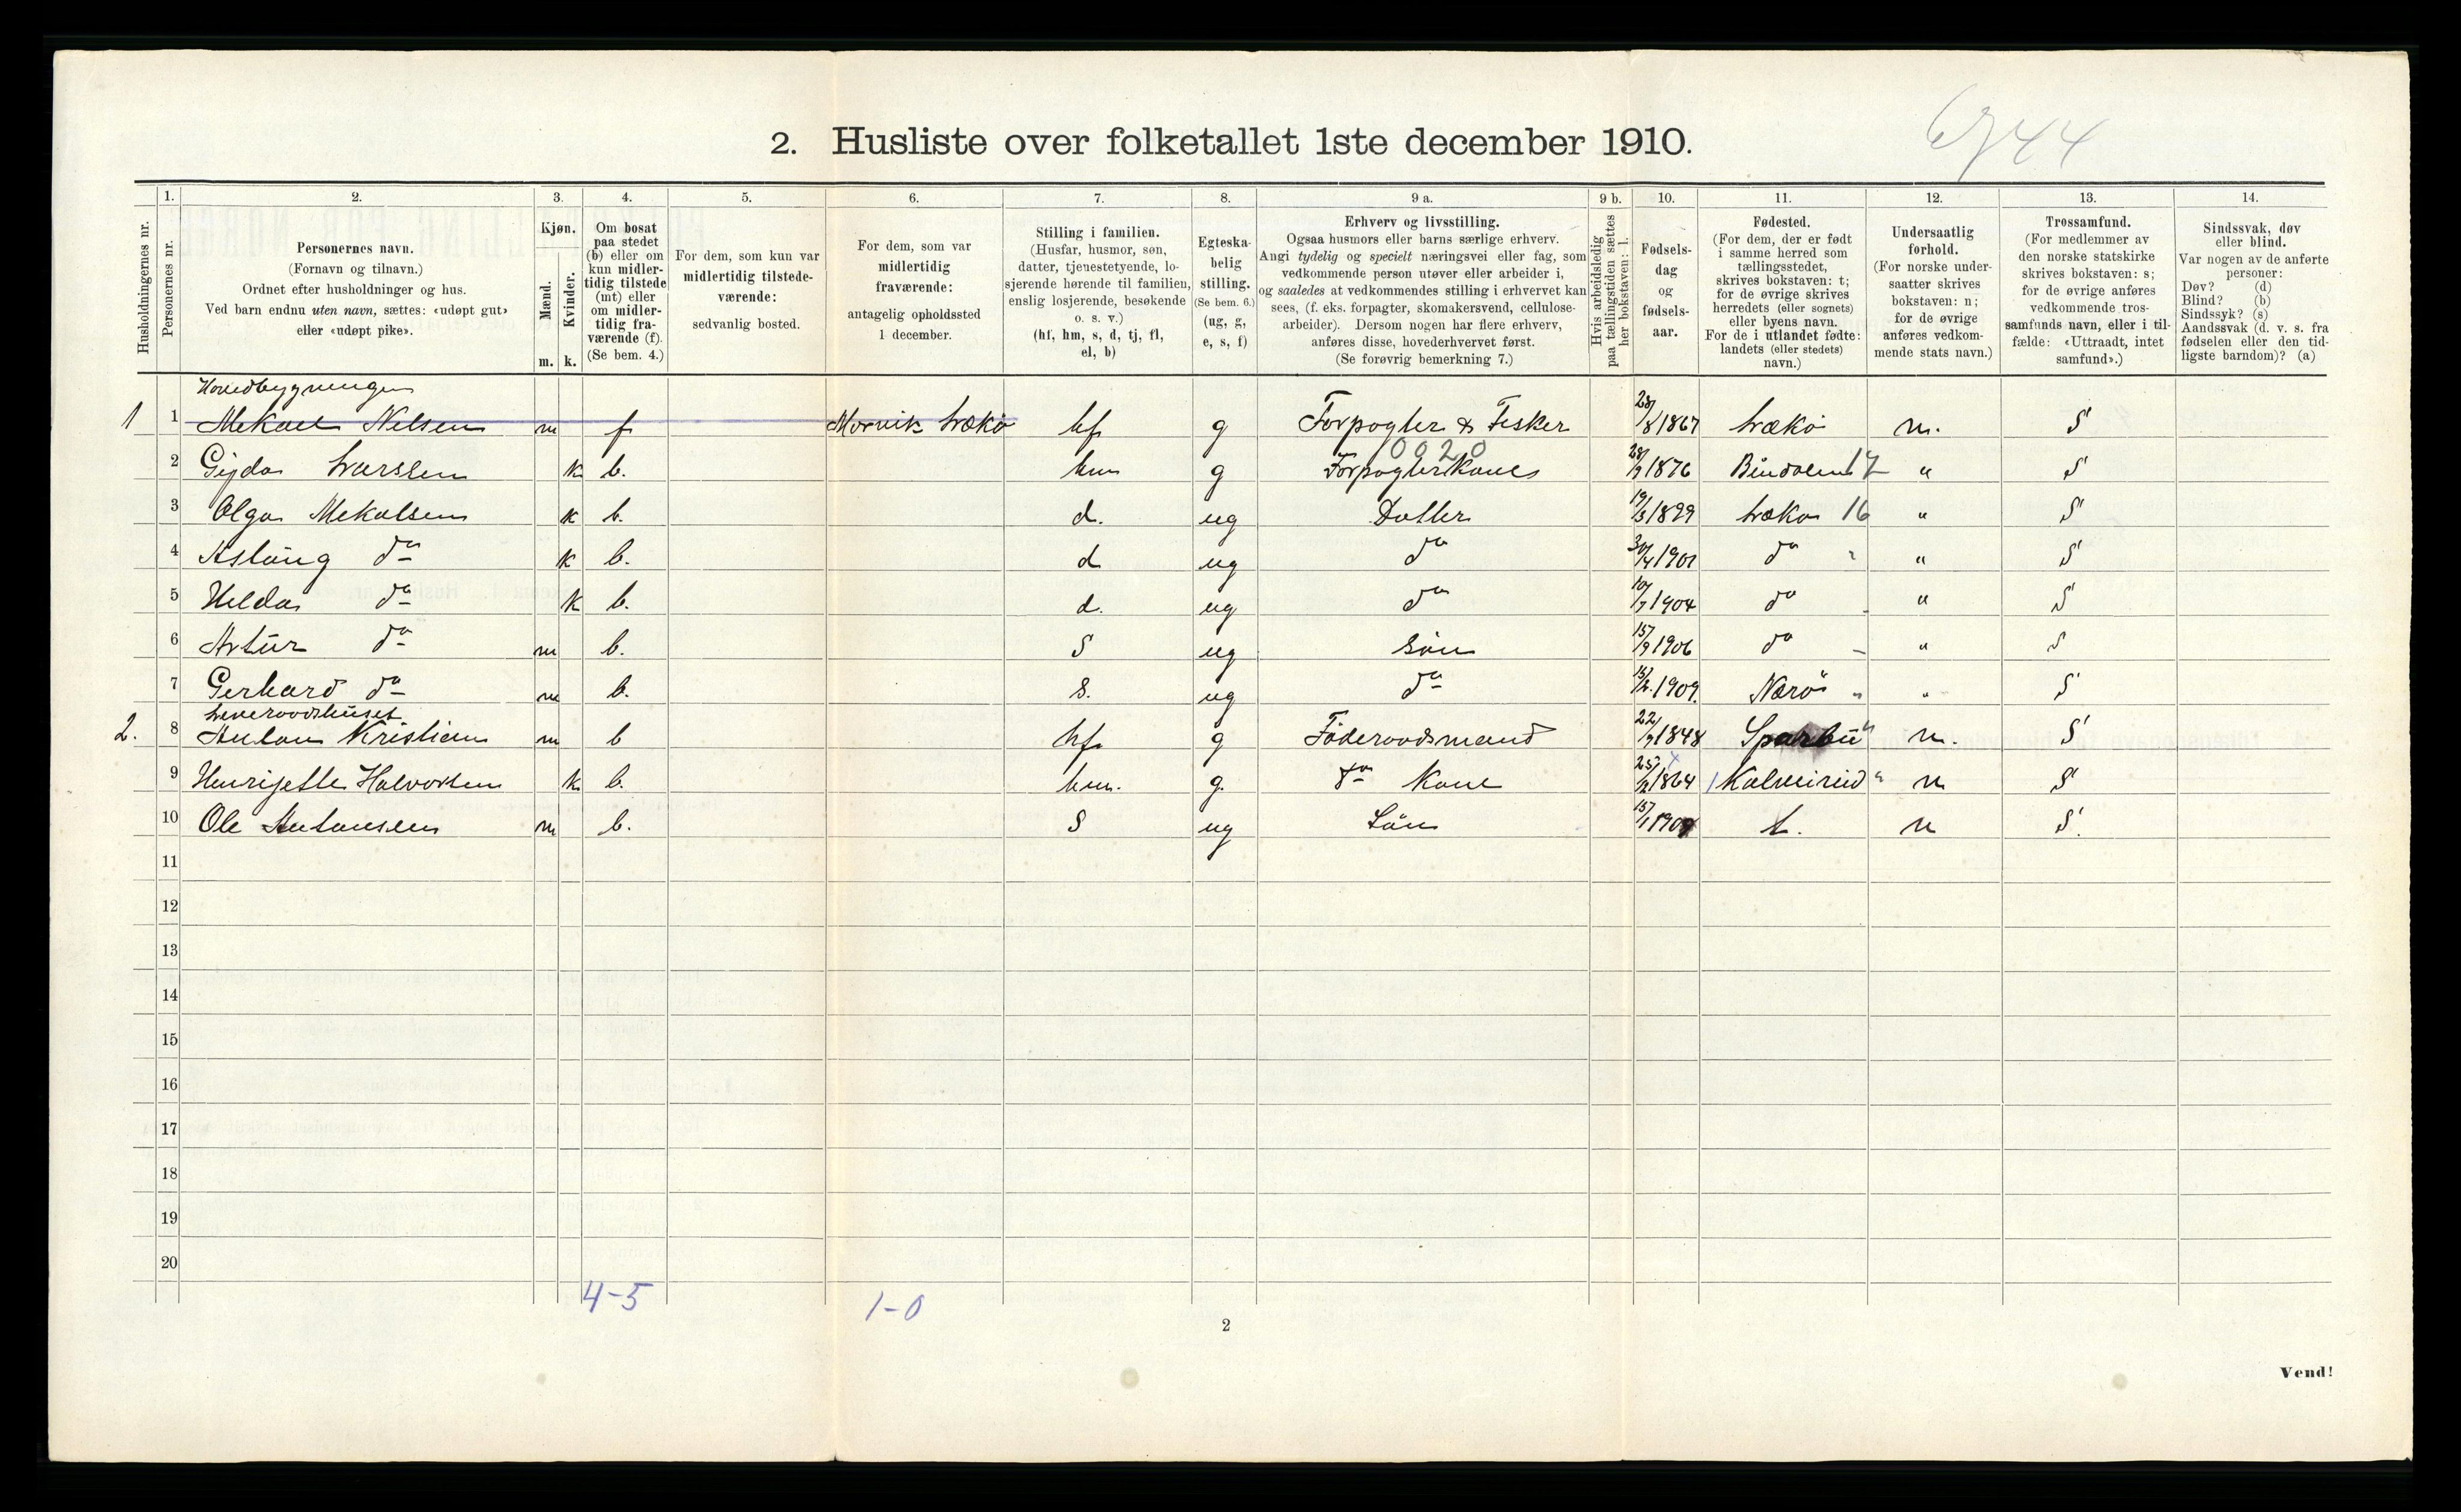 2. Husliste over folketallet 1ste december 1910.
1. 2. 3. 4. 5. 6. 7. 8. 9 a. 9 b. 10. 11. 12. 13. 14.
Husholdningernes nr.
Personernes nr.
Personernes navn.
(Fornavn og tilnavn.)
Ordnet efter husholdninger og hus.
Ved barn endnu uten navn, sættes: «udøpt gut»
eller «udøpt pike».
Kjøn.
Mænd.
m.
Kvinder.
k.
Om bosat
paa stedet
(b) eller om
kun midler-
tidig tilstede
(mt) eller
om midler-
tidig fra-
værende (f).
(Se bem. 4.)
For dem, som kun var
midlertidig tilstede-
værende:
sedvanlig bosted.
For dem, som var
midlertidig
fraværende:
antagelig opholdssted
1 december.
Stilling i familien.
(Husfar, husmor, søn,
datter, tjenestetyende, lo-
sjerende hørende til familien,
enslig losjerende, besøkende
o. s. v.)
(hf, hm, s, d, tj, fl,
el, b)
Egteska-
belig
stilling.
(Se bem. 6.)
(ug, g,
e, s, f)
Erhverv og livsstilling.
Ogsaa husmors eller barns særlige erhverv.
Angi tydelig og specielt næringsvei eller fag, som
vedkommende person utøver eller arbeider i,
og saaledes at vedkommendes stilling i erhvervet kan
sees, (f. eks. forpagter, skomakersvend, cellulose-
arbeider). Dersom nogen har flere erhverv,
anføres disse, hovederhvervet først.
(Se forøvrig bemerkning 7.)
Hvis arbeidsledig
paa tællingstiden sættes
her bokstaven: l.
Fødsels-
dag
og
fødsels-
aar.
Fødested.
(For dem, der er født
i samme herred som
tællingsstedet,
skrives bokstaven: t;
for de øvrige skrives
herredets (eller sognets)
eller byens navn.
For de i utlandet fødte:
landets (eller stedets)
navn.)
Undersaatlig
forhold.
(For norske under-
saatter skrives
bokstaven: n;
for de øvrige
anføres vedkom-
mende stats navn.)
Trossamfund.
(For medlemmer av
den norske statskirke
skrives bokstaven: s;
for de øvrige anføres
vedkommende tros-
samfunds navn, eller i til-
fælde: «Uttraadt, intet
samfund».)
Sindssvak, døv
eller blind.
Var nogen av de anførte
personer:
Døv? (d)
Blind? (b)
Sindssyk? (s)
Aandssvak (d. v. s. fra
fødselen eller den tid-
ligste barndom)? (a)
Hovedbygningen
1 1 Mekael Nelsen m f Morvik Lækø hf g Forpagter & Fisker 28/8 1867 Lækø n. S
0020
2 Gijda Larssen k b. hm g Forpagterkone 1876 Bindalen 17 " S
3 Olga Mekalsen k b. d. ug Datter 19/3 1899 Lækø 16 " S
4 Aslaug do k b. d ug do 30/4 1901 do " " S
5 Helda do k b. d. ug do 10/7 1904 do " S
6 Artur do m b. S ug Søn 15/9 1906 do - " S
7 Gerhard do m b. S. ug do 1909. Nærö " " S
Leveraadshuset
2. 8 Anton Kristian m b hf g Föderaadsmand 22/9 1848 Sparbu " n. S
9 Henrijette Halvorsen k b. hm. g. do Kone 25/2 1864 " n S
10 Ole Antonsen m b. S ug Sön 15/1 t. n S.
11
12
13
14
15
16
17
18
19
20
4-5 1-0
2
Vend!